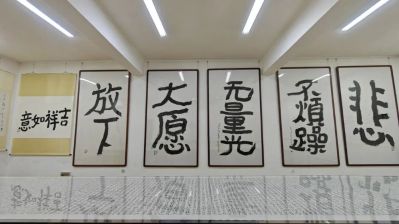 吉祥如意
放下
大愿
无量光
不煩躁
悲